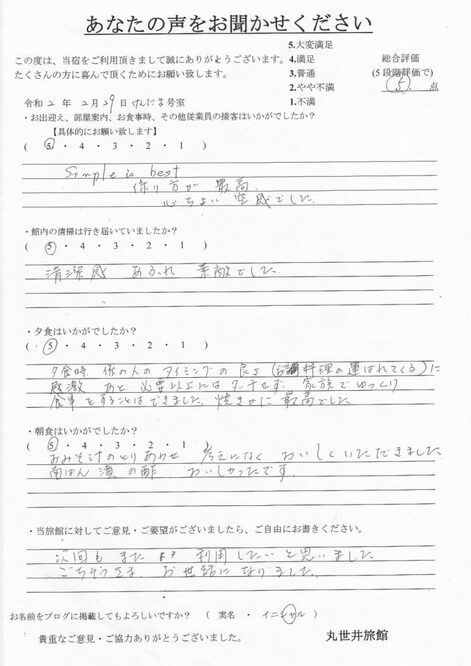 あなたの声をお聞かせください
この度は、当宿をご利用頂きまして誠にありがとうございます。
たくさんの方に喜んで頂くためにお願い致します。
5.大変満足
4.満足
3.普通
2.やや不満
1.不満
総合評価
(5段階評価で)
(5) 点
令和 2 年 2 月 29 日 号室
・お出迎え、部屋案内、お食事時、その他従業員の接客はいかがでしたか?
【具体的にお願い致します】
( 5 ・ 4 ・ 3 ・ 2 ・ 1 )
Simple is best
係り方が 最高。
心ちよい 空感でした。
・館内の清掃は行き届いていましたか?
( 5 ・ 4 ・ 3 ・ 2 ・ 1 )
清潔感 あふれ 素敵でした。
・夕食はいかがでしたか?
( 5 ・ 4 ・ 3 ・ 2 ・ 1 )
夕食時 係の人の タイミングの良さ (お料理の運ばれてくる) に
感激 あと 必要以上には タッチせず 家族でゆっくり
食事をすることはできました。焼きかに最高でした
・朝食はいかがでしたか?
( 5 ・ 4 ・ 3 ・ 2 ・ 1 )
おみそ汁のとりあわせ 考えになく おいしくいただきました
南ばん漬の酢 おいしかったです
・当旅館に対してご意見・ご要望がございましたら、ご自由にお書きください。
次回も また 利用したいと思いました
ごちそうさま、お世話になりました。
お名前をブログに掲載してもよろしいですか? ( 実名 ・ イニシャル )
貴重なご意見・ご協力ありがとうございました。
丸世井旅館